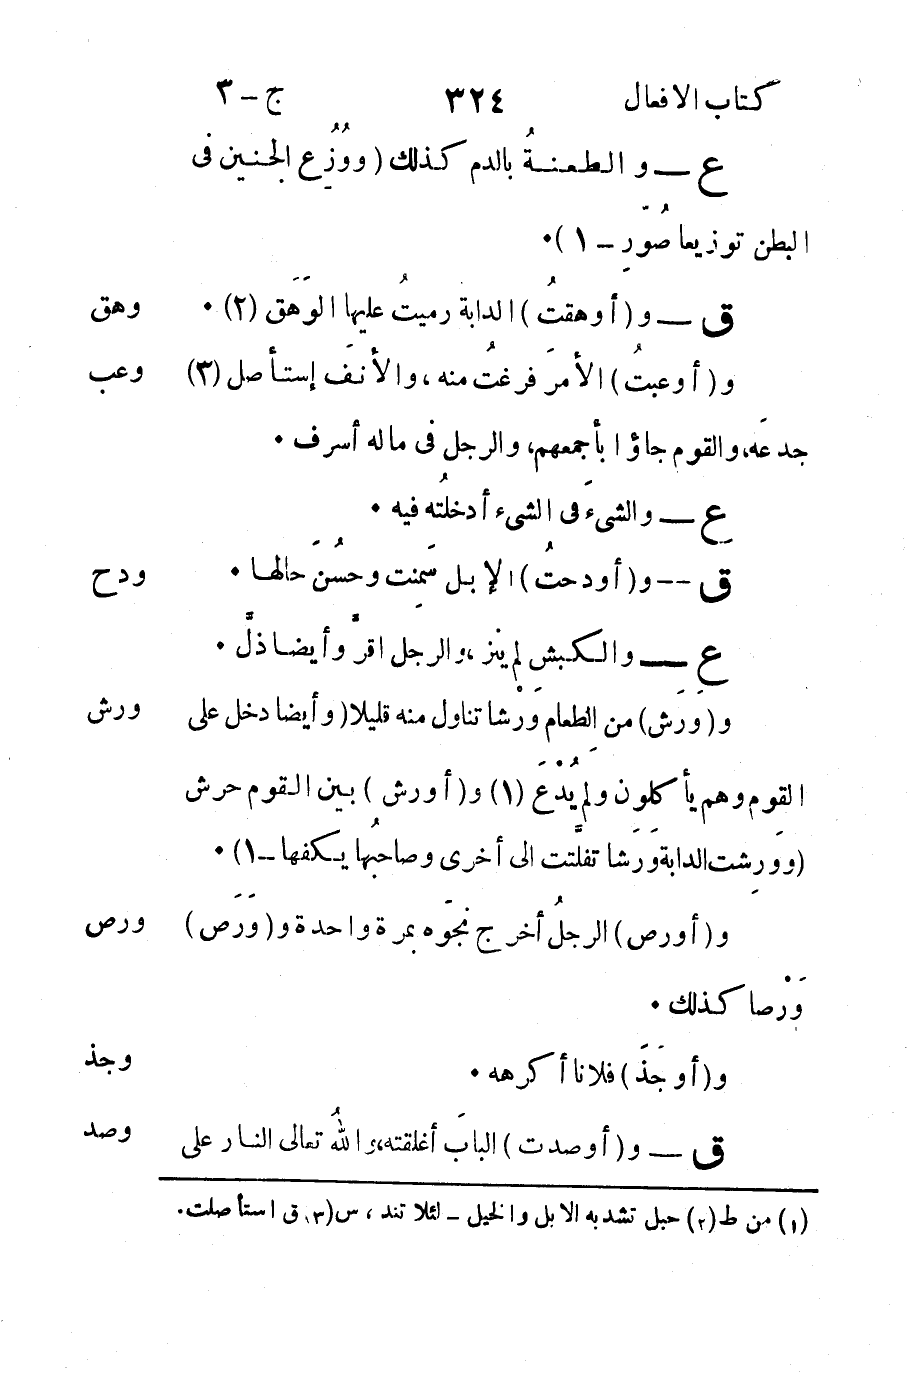 كتاب الافعال ٣٢٤ ج – ٣
ع — و الطعنةُ بالدم كذلك ( ووُزِّع الجنين فى
البطن توزيعا صُوِّرَ – ١ ).
ق — و ( أوهقتُ ) الدابة رميتُ عليها الوَهَق (٢) . وهق
و ( أوعبتُ ) الأمرَ فرغتُ منه ، والأنفَ إستأصل (٣) وعب
جدعَه، والقوم جاؤا بأجمعهم، والرجل فى ماله أسرف .
ع — والشىءَ فى الشىء أدخلتُه فيه .
ق -- و ( أودحتُ ) الإبل سَمِنت وحسُنَ حَالها . ودح
ع — والكبش لم ينز ،والرجل اقرَّ وأيضا ذلَّ .
و ( وَرَش ) من الطعام وَرْشا تناول منه قليلا( وأيضا دخل على ورش
القوم وهم يأكلون ولم يُدْعَ (١) و ( أورش ) بين القوم حرش
( ووَرِشت الدابة وَرَشا تفلَّتت الى أخرى وصاحبُها يكفها – ١) .
و ( أورص ) الرجلُ أخرج نجوَه بمرة واحدة و ( وَرَص ) ورص
وَرْصا كذلك .
و ( أوجَذَ ) فلانا أكرهه . وجذ
ق — و ( أوصدت ) البابَ أغلقته، والله تعالى النار على وصد
(١) من ط (٢) حبل تشد به الابل والخيل – لئلا تند ، س (٣) ق استأصلت.